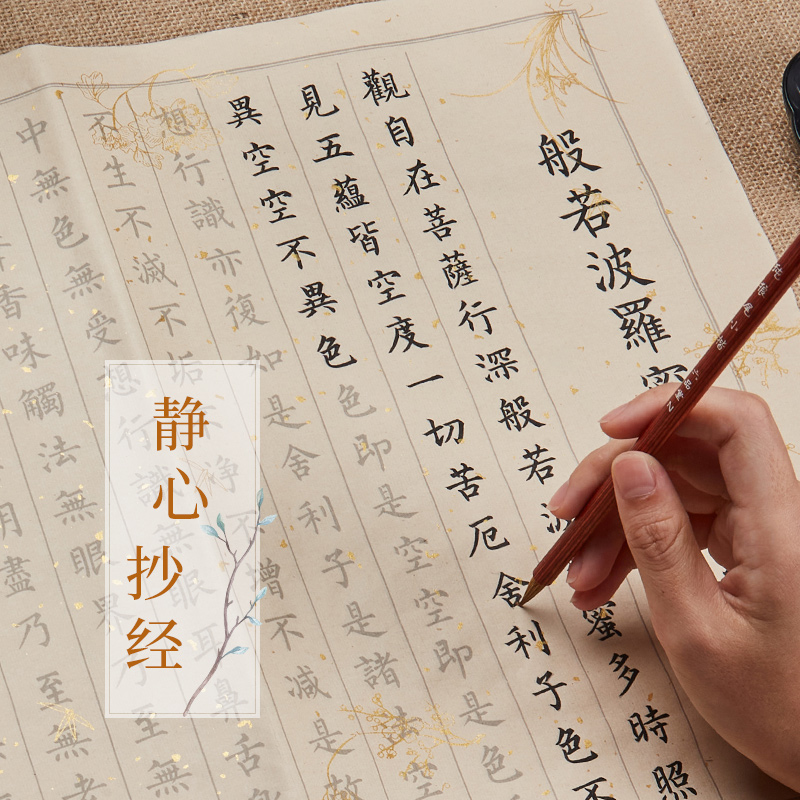 般若波羅
觀自在菩薩行深般若波蜜多時照
見五蘊皆空度一切苦厄舍利子色不
異空空不異色色即是空空即是色
想行識亦復如是舍利子是諸法空
不生不滅不垢不淨不增不減是故
中無色無受想行識無眼耳鼻舌
香味觸法無眼界乃至無
明盡乃至無老
静心
抄经